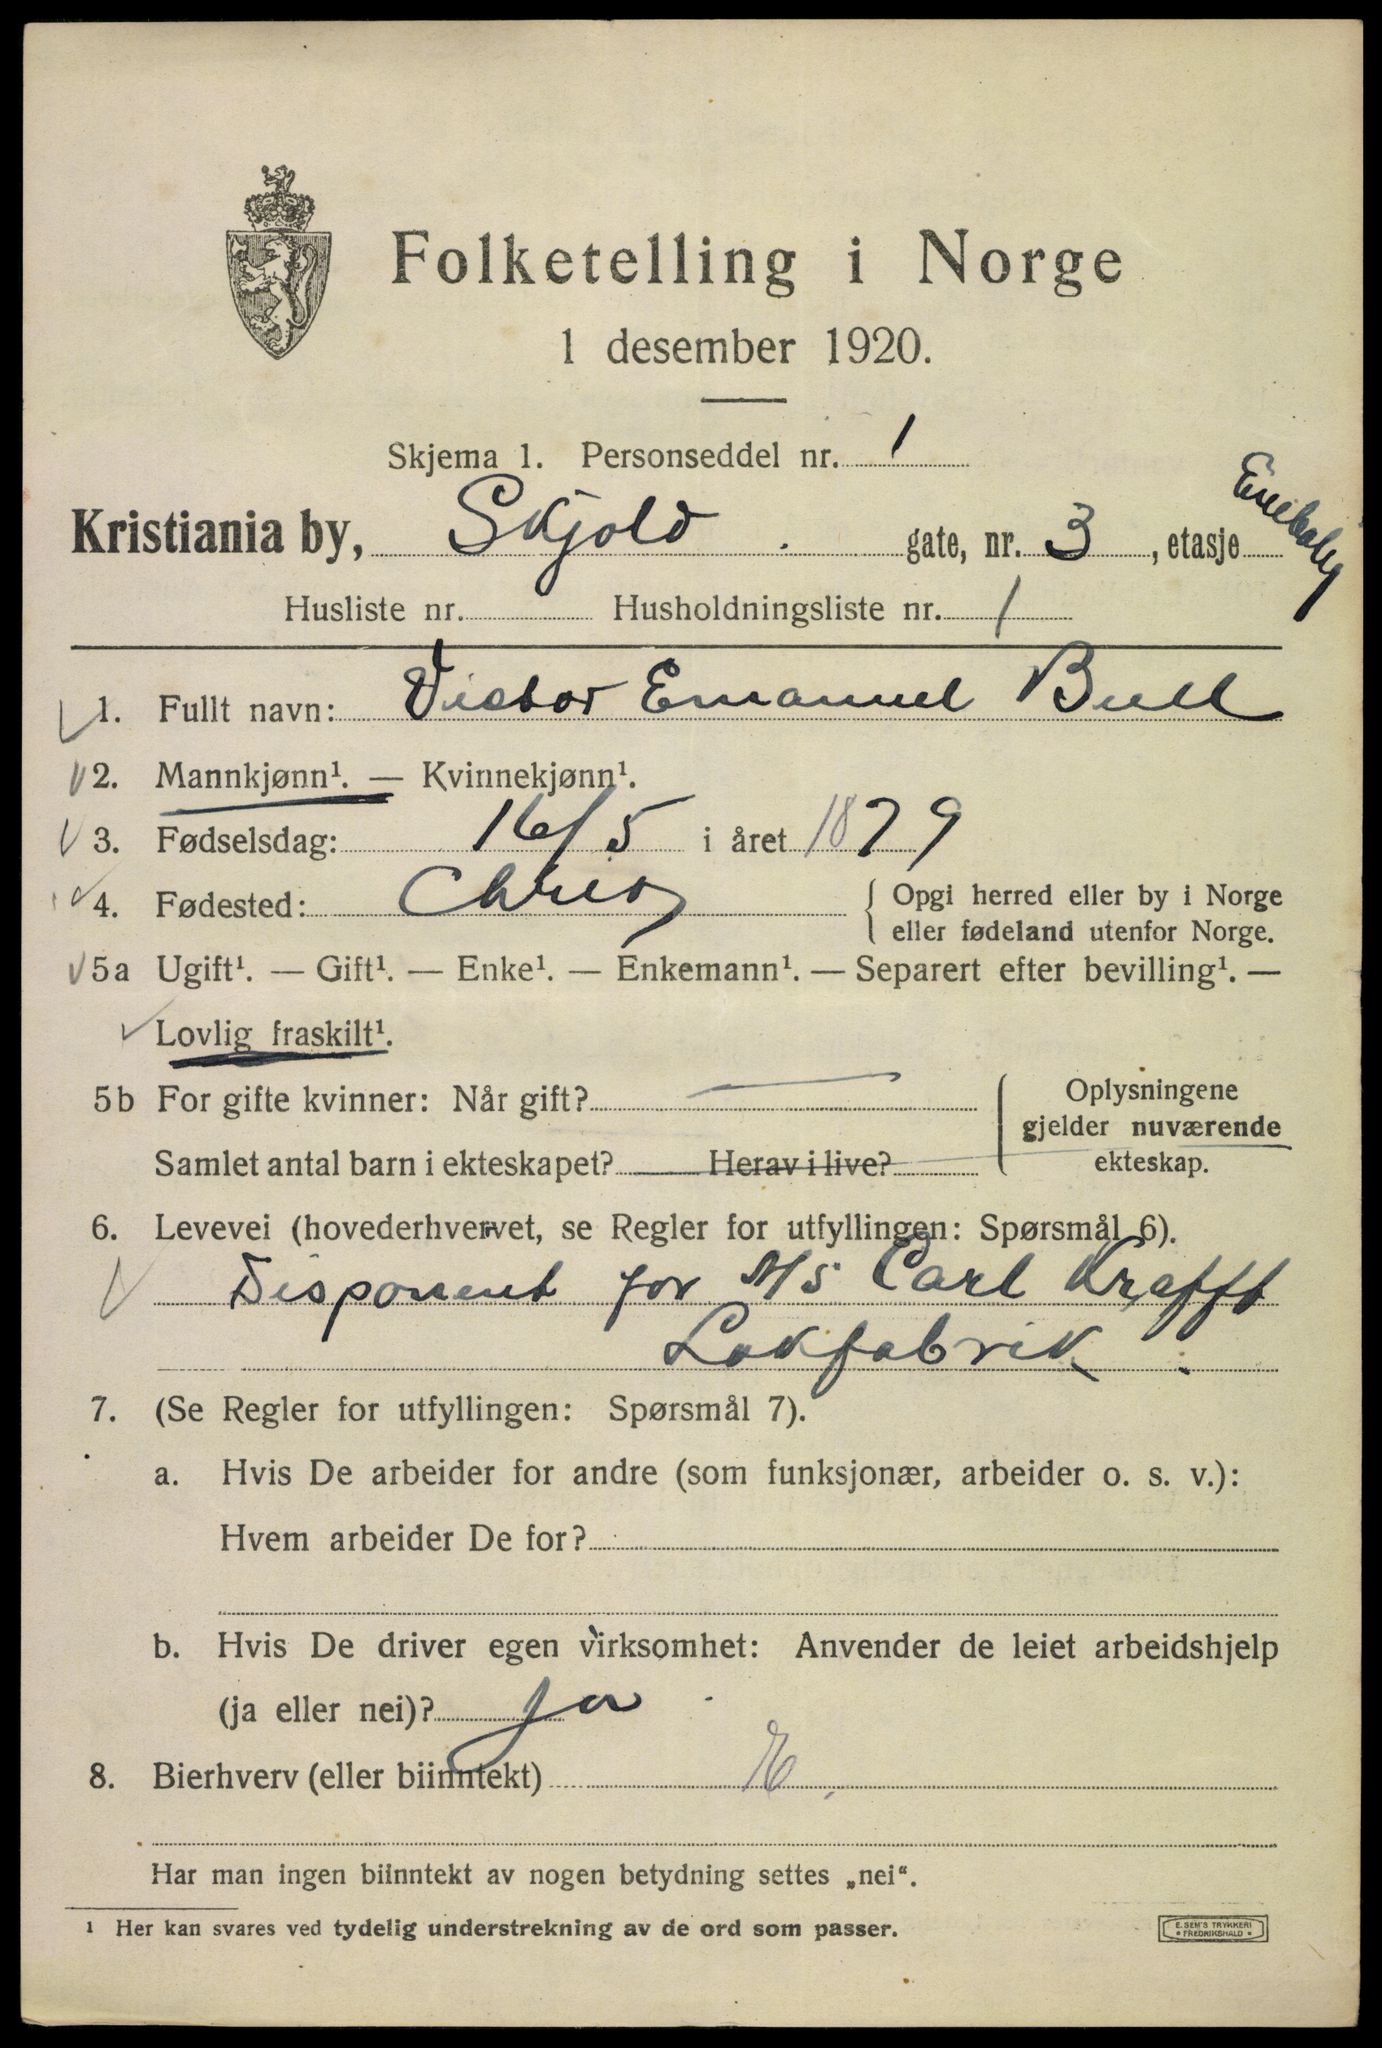 Folketelling i Norge
1 desember 1920.
Skjema 1. Personseddel nr. 1
Kristiania by, Skjold gate, nr. 3, etasje Enebolig
Husliste nr. Husholdningsliste nr. 1
1. Fullt navn: Victor Emanuel Bull
2. Mannkjønn¹. — Kvinnekjønn¹.
3. Fødselsdag: 16/5 i året 1879
4. Fødested: Chria { Opgi herred eller by i Norge
eller fødeland utenfor Norge.
5a Ugift¹. — Gift¹. — Enke¹. — Enkemann¹. — Separert efter bevilling¹. —
Lovlig fraskilt¹.
5b For gifte kvinner: Når gift?
Samlet antal barn i ekteskapet? Herav i live?
Oplysningene
gjelder nuværende
ekteskap.
6. Levevei (hovederhvervet, se Regler for utfyllingen: Spørsmål 6).
Disponent for A/S Carl Krafft
Lakfabrik.
7. (Se Regler for utfyllingen: Spørsmål 7).
a. Hvis De arbeider for andre (som funksjonær, arbeider o. s. v.):
Hvem arbeider De for?
b. Hvis De driver egen virksomhet: Anvender de leiet arbeidshjelp
(ja eller nei)? Ja
8. Bierhverv (eller biinntekt)
Har man ingen biinntekt av nogen betydning settes „nei“.
¹ Her kan svares ved tydelig understrekning av de ord som passer.
E. SEM'S TRYKKERI
* FREDRIKSHALD *